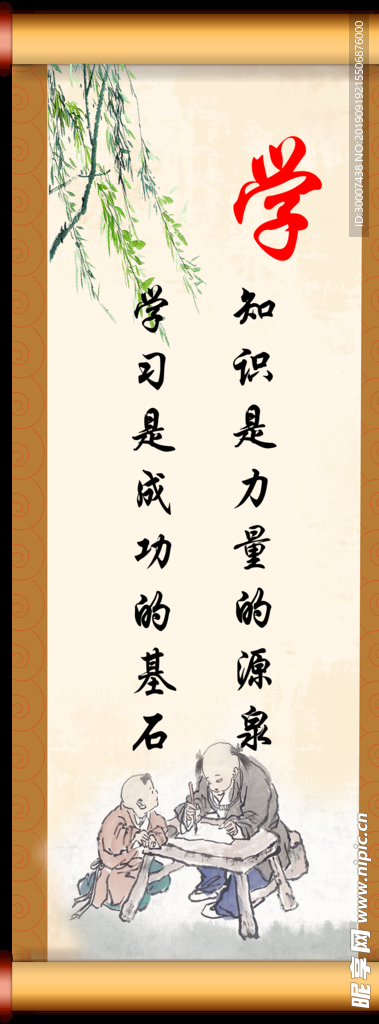 学
知识是力量的源泉
学习是成功的基石
ID:30007438 NO:20190919215506876000
昵享网 www.nipic.cn